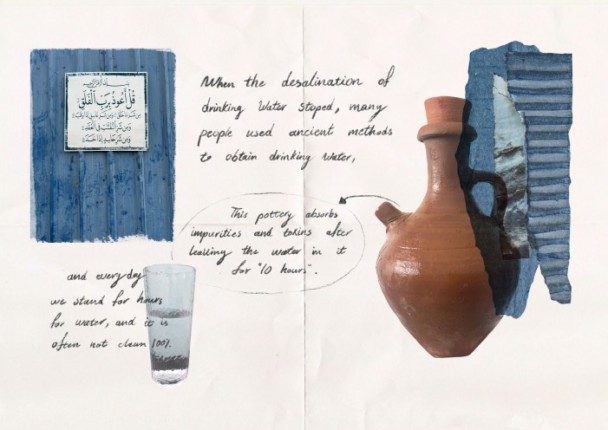 قُلْ أَعُوذُ بِرَبِّ الْفَلَقِ
When the desalination of
drinking water stoped, many
people used ancient methods
to obtain drinking water,
This pottery absorbs
impurities and toxins after
leaving the water in it
for "10 hours".
and everyday
we stand for hours
for water, and it is
often not clean 100%